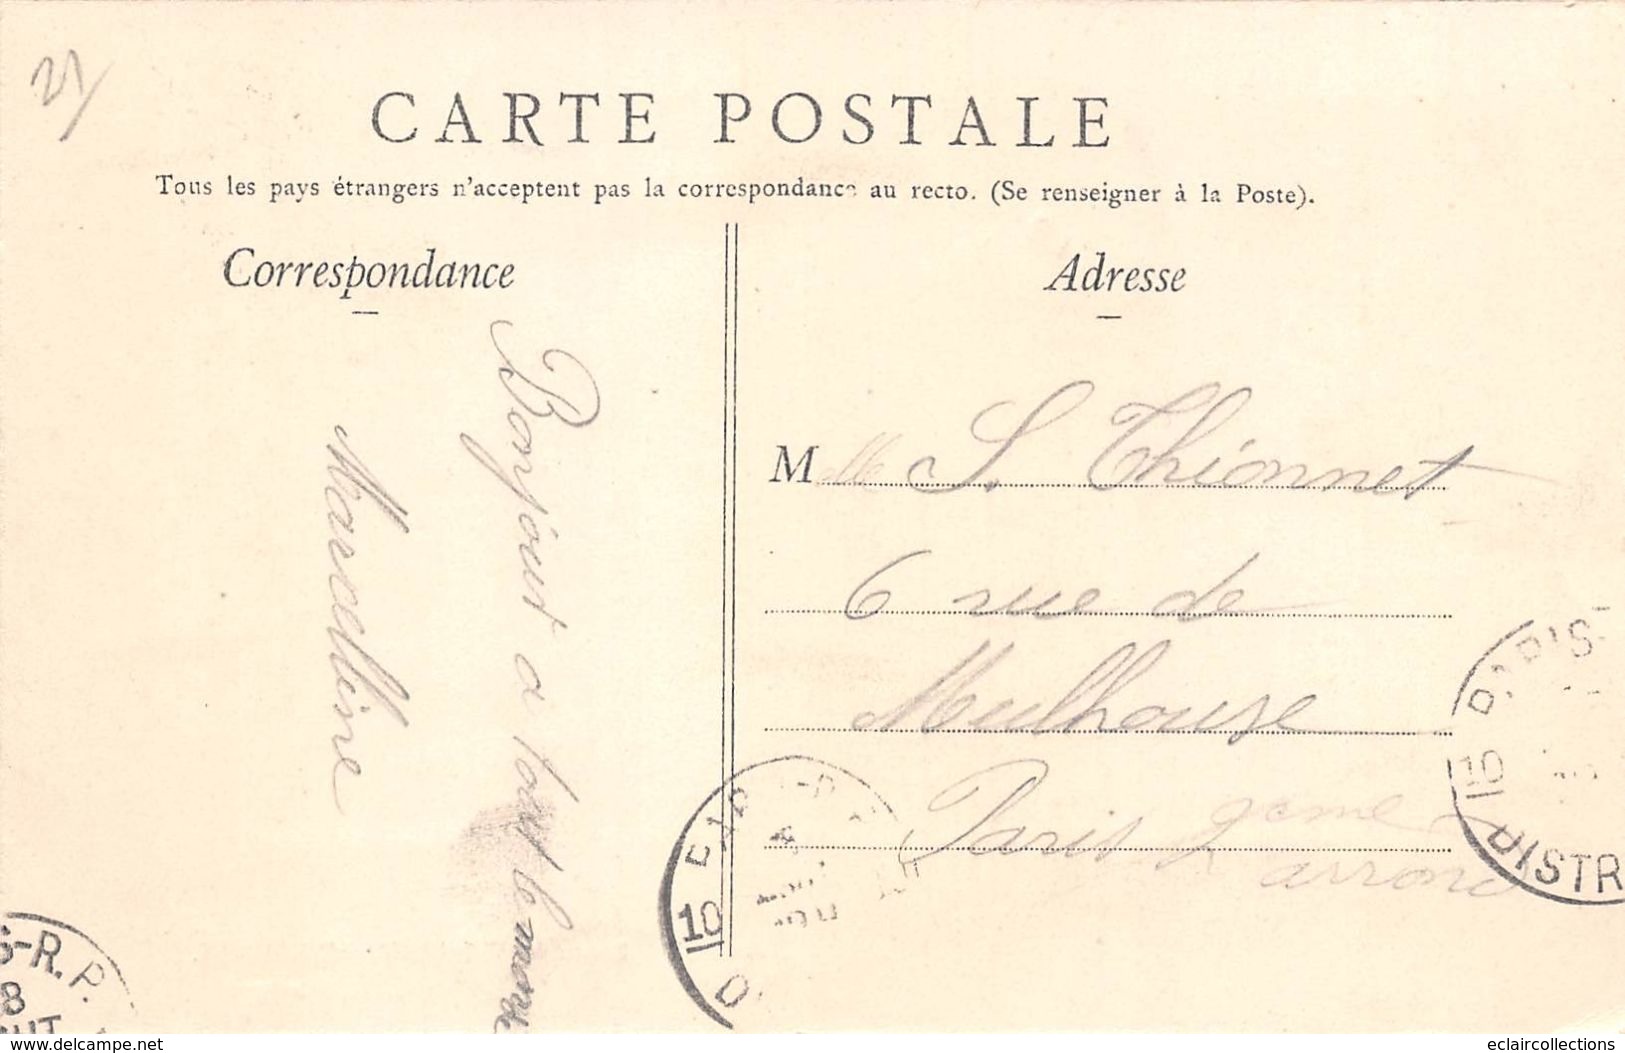 21
CARTE POSTALE
Tous les pays étrangers n'acceptent pas la correspondance au recto. (Se renseigner à la Poste).
Correspondance
Bonjour a tout le monde
Marcelline
Adresse
Mlle S. Thionnet
6 rue de
Mulhouse
Paris 2 eme
arrond
PARIS
10
DISTR
PARIS-R.P.
10
D
S-R.P.
8
www.delcampe.net
eclaircollections